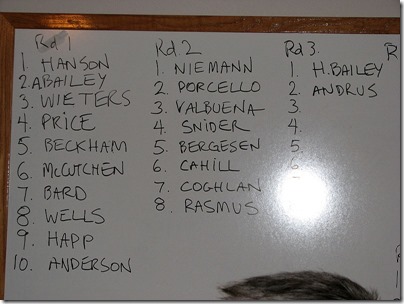 Rd 1
1. HANSON
2. ABAILEY
3. WIETERS
4. PRICE
5. BECKHAM
6. McCUTCHEN
7. BARD
8. WELLS
9. HAPP
10. ANDERSON
Rd 2
1. NIEMANN
2. PORCELLO
3. VALBUENA
4. SNIDER
5. BERGESEN
6. CAHILL
7. COGHLAN
8. RASMUS
Rd 3.
1. H.BAILEY
2. ANDRUS
3.
4.
5.
6
R